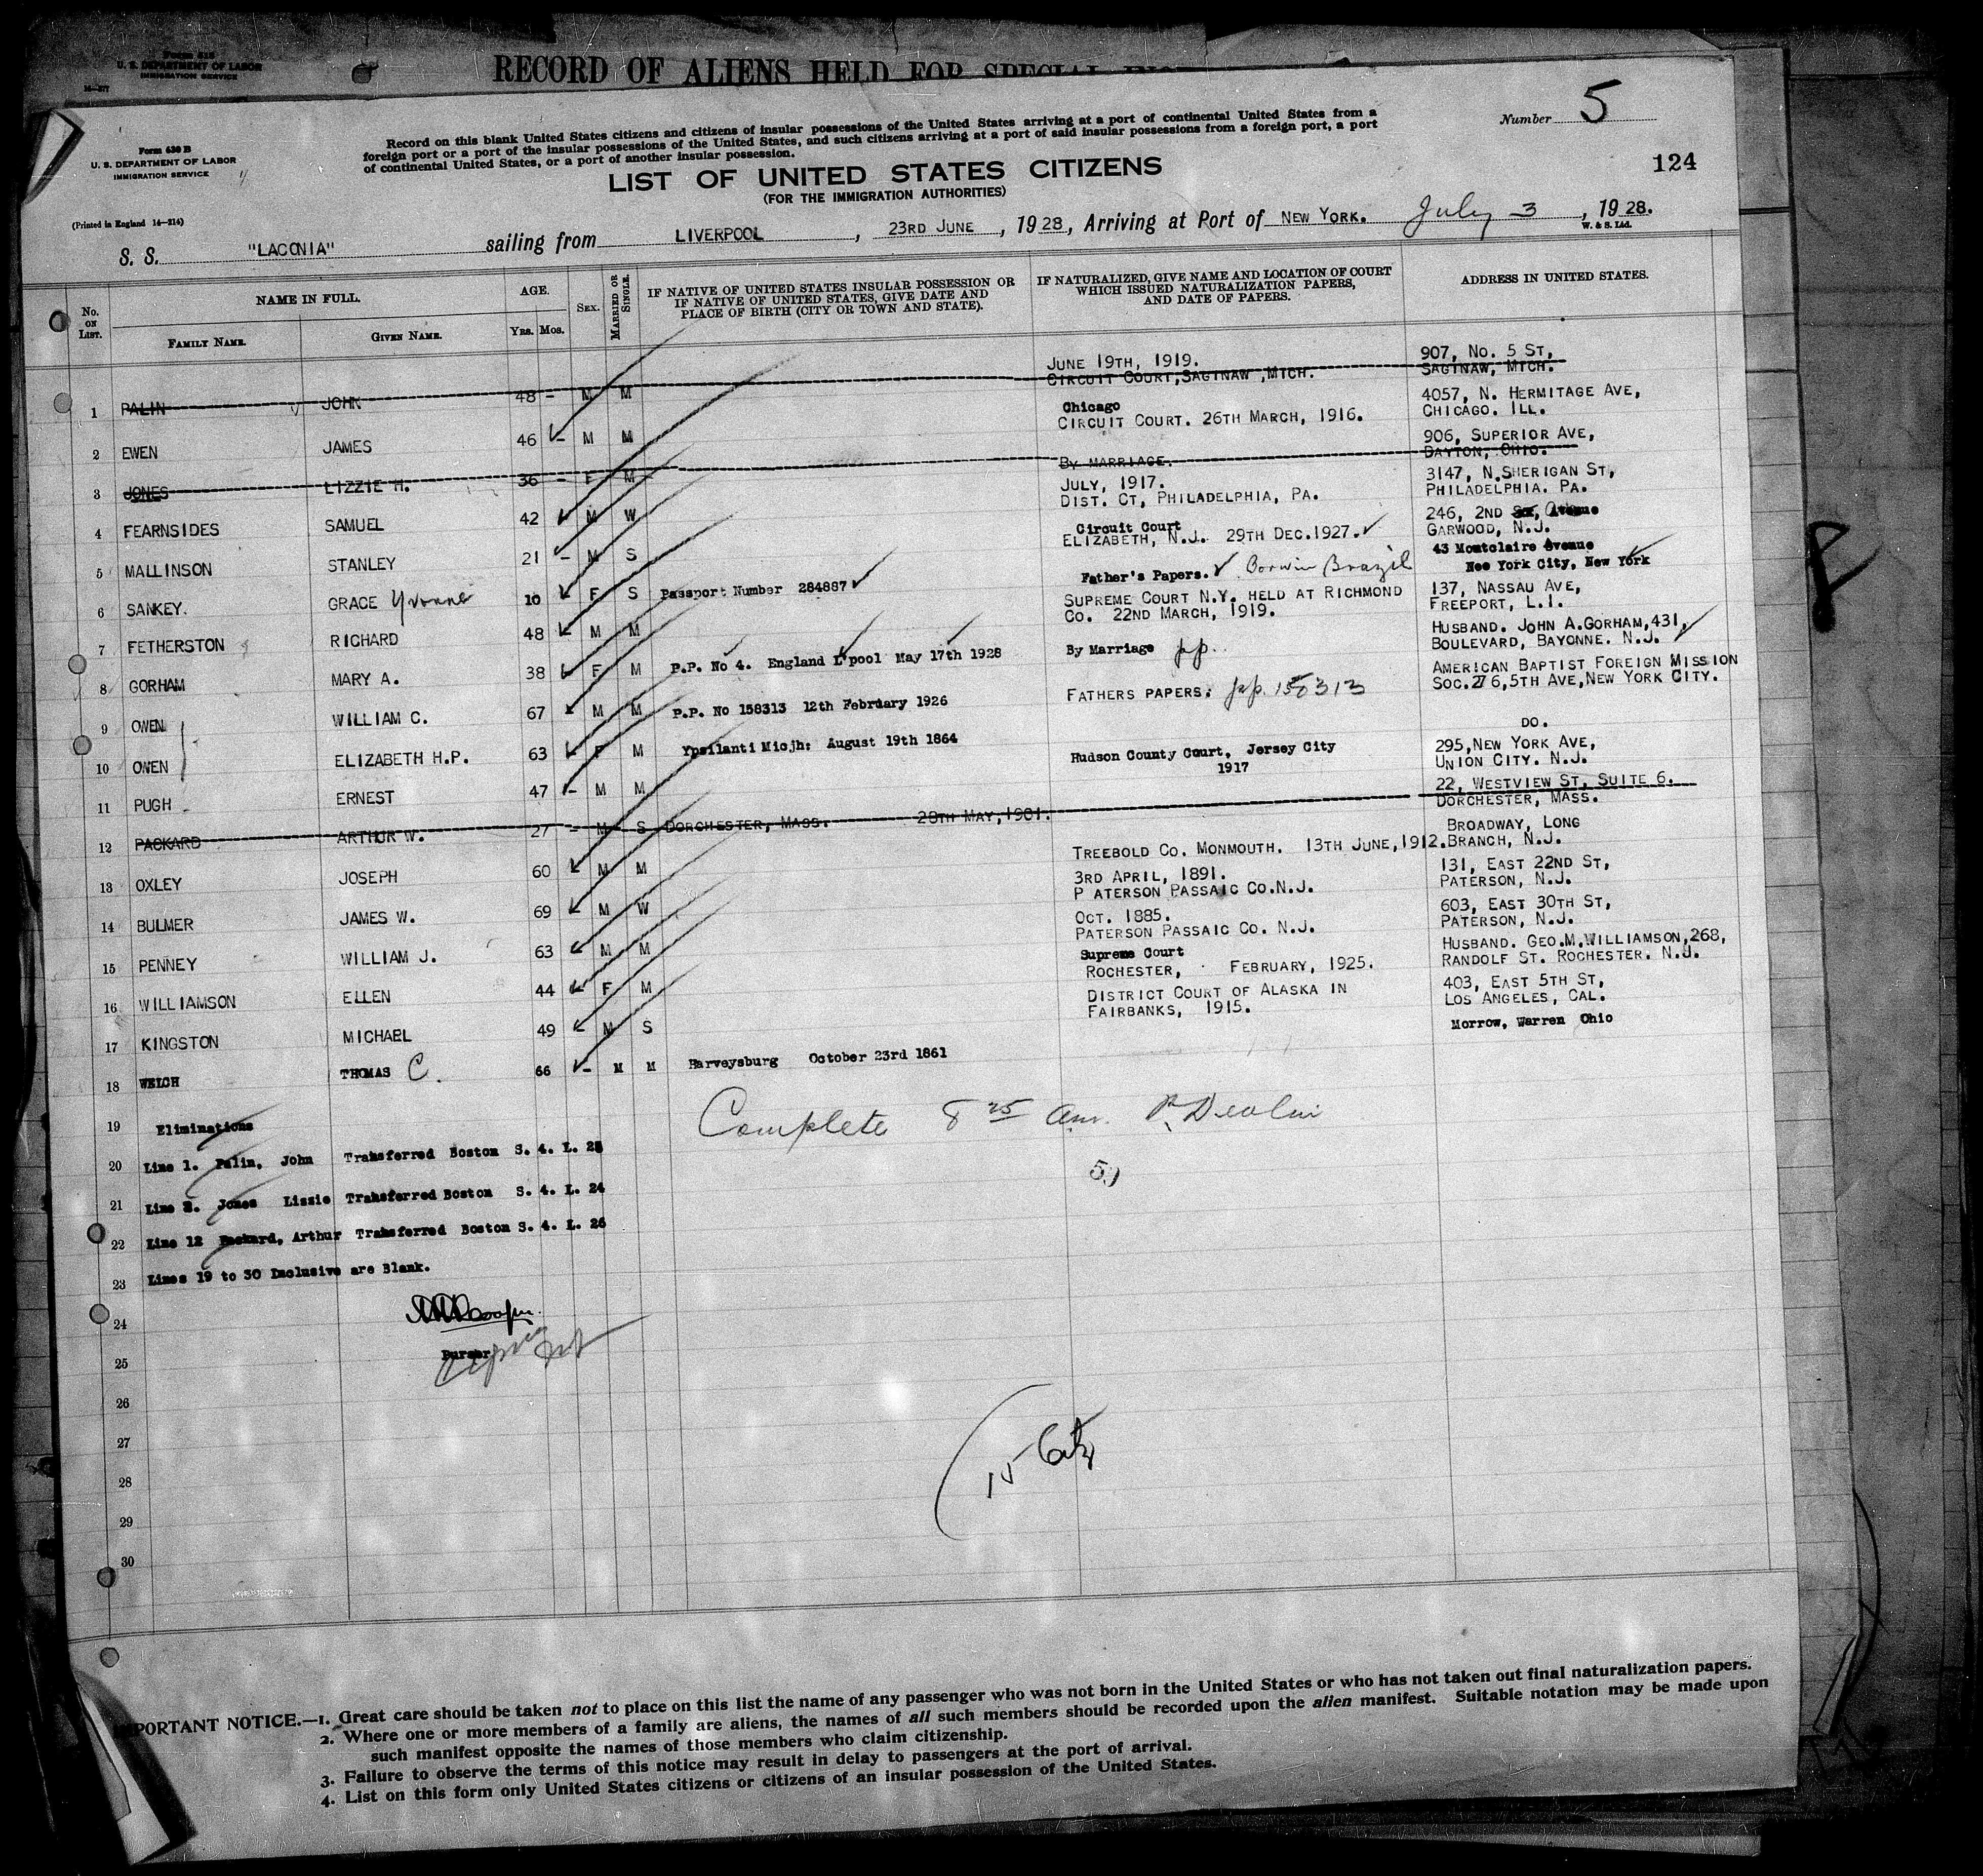 Form 616
U. S. DEPARTMENT OF LABOR
IMMIGRATION SERVICE
RECORD OF ALIENS HELD FOR SPECIAL
Number 5
Form 630 B
U. S. DEPARTMENT OF LABOR
IMMIGRATION SERVICE
Record on this blank United States citizens and citizens of insular possessions of the United States arriving at a port of continental United States from a
foreign port or a port of the insular possessions of the United States, and such citizens arriving at a port of said insular possessions from a foreign port, a port
of continental United States, or a port of another insular possession.
124
LIST OF UNITED STATES CITIZENS
(FOR THE IMMIGRATION AUTHORITIES)
(Printed in England 14—214)
S. S. "LACONIA" sailing from LIVERPOOL, 23RD JUNE, 1928, Arriving at Port of NEW YORK. July 3, 1928.
W. & S. Ltd.
No. ON LIST. NAME IN FULL. FAMILY NAME. GIVEN NAME. AGE. YRS. MOS. SEX. MARRIED OR SINGLE. IF NATIVE OF UNITED STATES INSULAR POSSESSION OR IF NATIVE OF UNITED STATES, GIVE DATE AND PLACE OF BIRTH (CITY OR TOWN AND STATE). IF NATURALIZED, GIVE NAME AND LOCATION OF COURT WHICH ISSUED NATURALIZATION PAPERS, AND DATE OF PAPERS. ADDRESS IN UNITED STATES.
1 PALIN JOHN 48 - M M JUNE 19TH, 1919. CIRCUIT COURT, SAGINAW, MICH. 907, No. 5 ST, SAGINAW, MICH.
2 EWEN JAMES 46 - M M Chicago CIRCUIT COURT. 26TH MARCH, 1916. 4057, N. HERMITAGE AVE, CHICAGO. ILL.
3 JONES LIZZIE H. 36 - F M BY MARRIAGE. 906, SUPERIOR AVE, DAYTON, OHIO.
4 FEARNSIDES SAMUEL 42 M W JULY, 1917. DIST. CT, PHILADELPHIA, PA. 3147, N.SHERIGAN ST, PHILADELPHIA. PA.
5 MALLINSON STANLEY 21 - M S Circuit Court ELIZABETH, N.J. 29TH DEC.1927. 246, 2ND Avenue GARWOOD, N.J.
6 SANKEY. GRACE Yvonne 10 - F S Passport Number 284887 Father's Papers. Born in Brazil 43 Montclaire Avenue New York City, New York
7 FETHERSTON RICHARD 48 - M M SUPREME COURT N.Y. HELD AT RICHMOND CO. 22ND MARCH, 1919. 137, NASSAU AVE, FREEPORT, L.I.
8 GORHAM MARY A. 38 - F M P.P. No 4. England L'pool May 17th 1928 By Marriage pp. HUSBAND. JOHN A.GORHAM, 431, BOULEVARD, BAYONNE. N.J.
9 OWEN WILLIAM C. 67 M M P.P. No 158313 12th February 1926 FATHERS PAPERS. 158313 AMERICAN BAPTIST FOREIGN MISSION SOC.276,5TH AVE,NEW YORK CITY.
10 OWEN ELIZABETH H.P. 63 - F M Ypsilanti Micjh: August 19th 1864 DO.
11 PUGH ERNEST 47 - M M Hudson County Court, Jersey City 1917 295, NEW YORK AVE, UNION CITY. N.J.
12 PACKARD ARTHUR W. 27 - M S DORCHESTER, MASS. 28TH MAY,1901. 22, WESTVIEW ST, SUITE 6. DORCHESTER, MASS.
13 OXLEY JOSEPH 60 M M TREEBOLD CO. MONMOUTH. 13TH JUNE,1912. BROADWAY, LONG BRANCH, N.J.
14 BULMER JAMES W. 69 M W 3RD APRIL, 1891. P ATERSON PASSAIC CO.N.J. 131, EAST 22ND ST, PATERSON, N.J.
15 PENNEY WILLIAM J. 63 M M OCT. 1885. PATERSON PASSAIC CO. N.J. 603, EAST 30TH ST, PATERSON, N.J.
16 WILLIAMSON ELLEN 44 - F M Supreme Court ROCHESTER, FEBRUARY, 1925. HUSBAND. GEO.M.WILLIAMSON,268, RANDOLF ST. ROCHESTER. N.J.
17 KINGSTON MICHAEL 49 - M S DISTRICT COURT OF ALASKA IN FAIRBANKS, 1915. 403, EAST 5TH ST, LOS ANGELES, CAL.
18 WELCH THOMAS C. 66 - M M Harveysburg October 23rd 1861 Morrow, Warren Ohio
19 Eliminations
Complete 8 25 am.
20 Line 1. Palin, John Transferred Boston S. 4. L. 25
59
21 Line 3. Jones Lizzie Transferred Boston S. 4. L. 24
22 Line 12 Packard, Arthur Transferred Boston S. 4. L. 26
23 Lines 19 to 30 Inclusive are Blank.
24
25 Purser
26
27
28
15
29
30
IMPORTANT NOTICE.—1. Great care should be taken not to place on this list the name of any passenger who was not born in the United States or who has not taken out final naturalization papers.
2. Where one or more members of a family are aliens, the names of all such members should be recorded upon the alien manifest. Suitable notation may be made upon
such manifest opposite the names of those members who claim citizenship.
3. Failure to observe the terms of this notice may result in delay to passengers at the port of arrival.
4. List on this form only United States citizens or citizens of an insular possession of the United States.